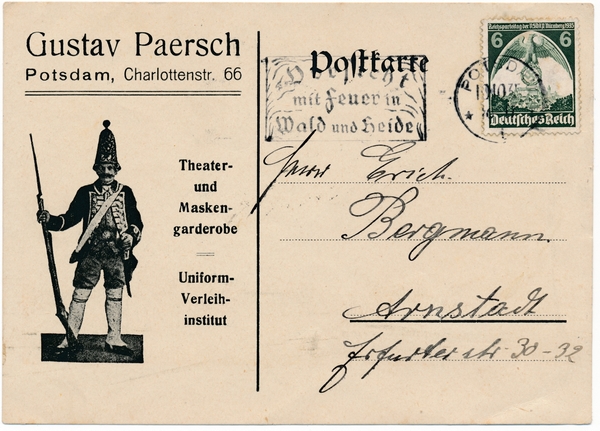 Gustav Paersch
Potsdam, Charlottenstr. 66
Theater-
und
Masken-
garderobe
Uniform-
Verleih-
institut
Postkarte
mit Feuer in
Wald und Heide
6 Reichsparteitag der NSDAP Nürnberg 1935 6
Deutsches Reich
Herrn Erich
Bergmann
Arnstadt
Erfurter str 30-32